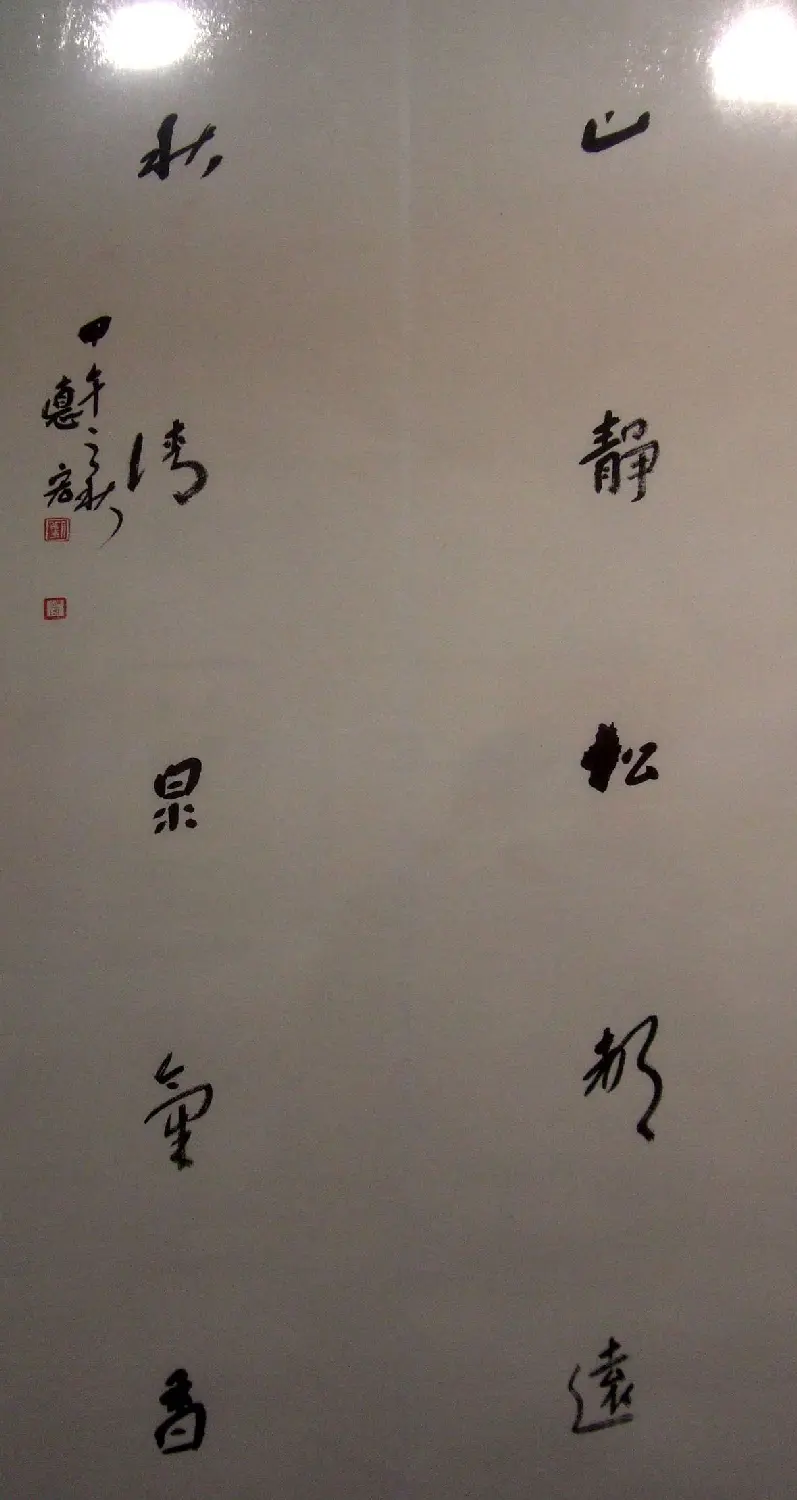 山靜松聲遠
秋清泉氣香
甲午之秋
悳宏